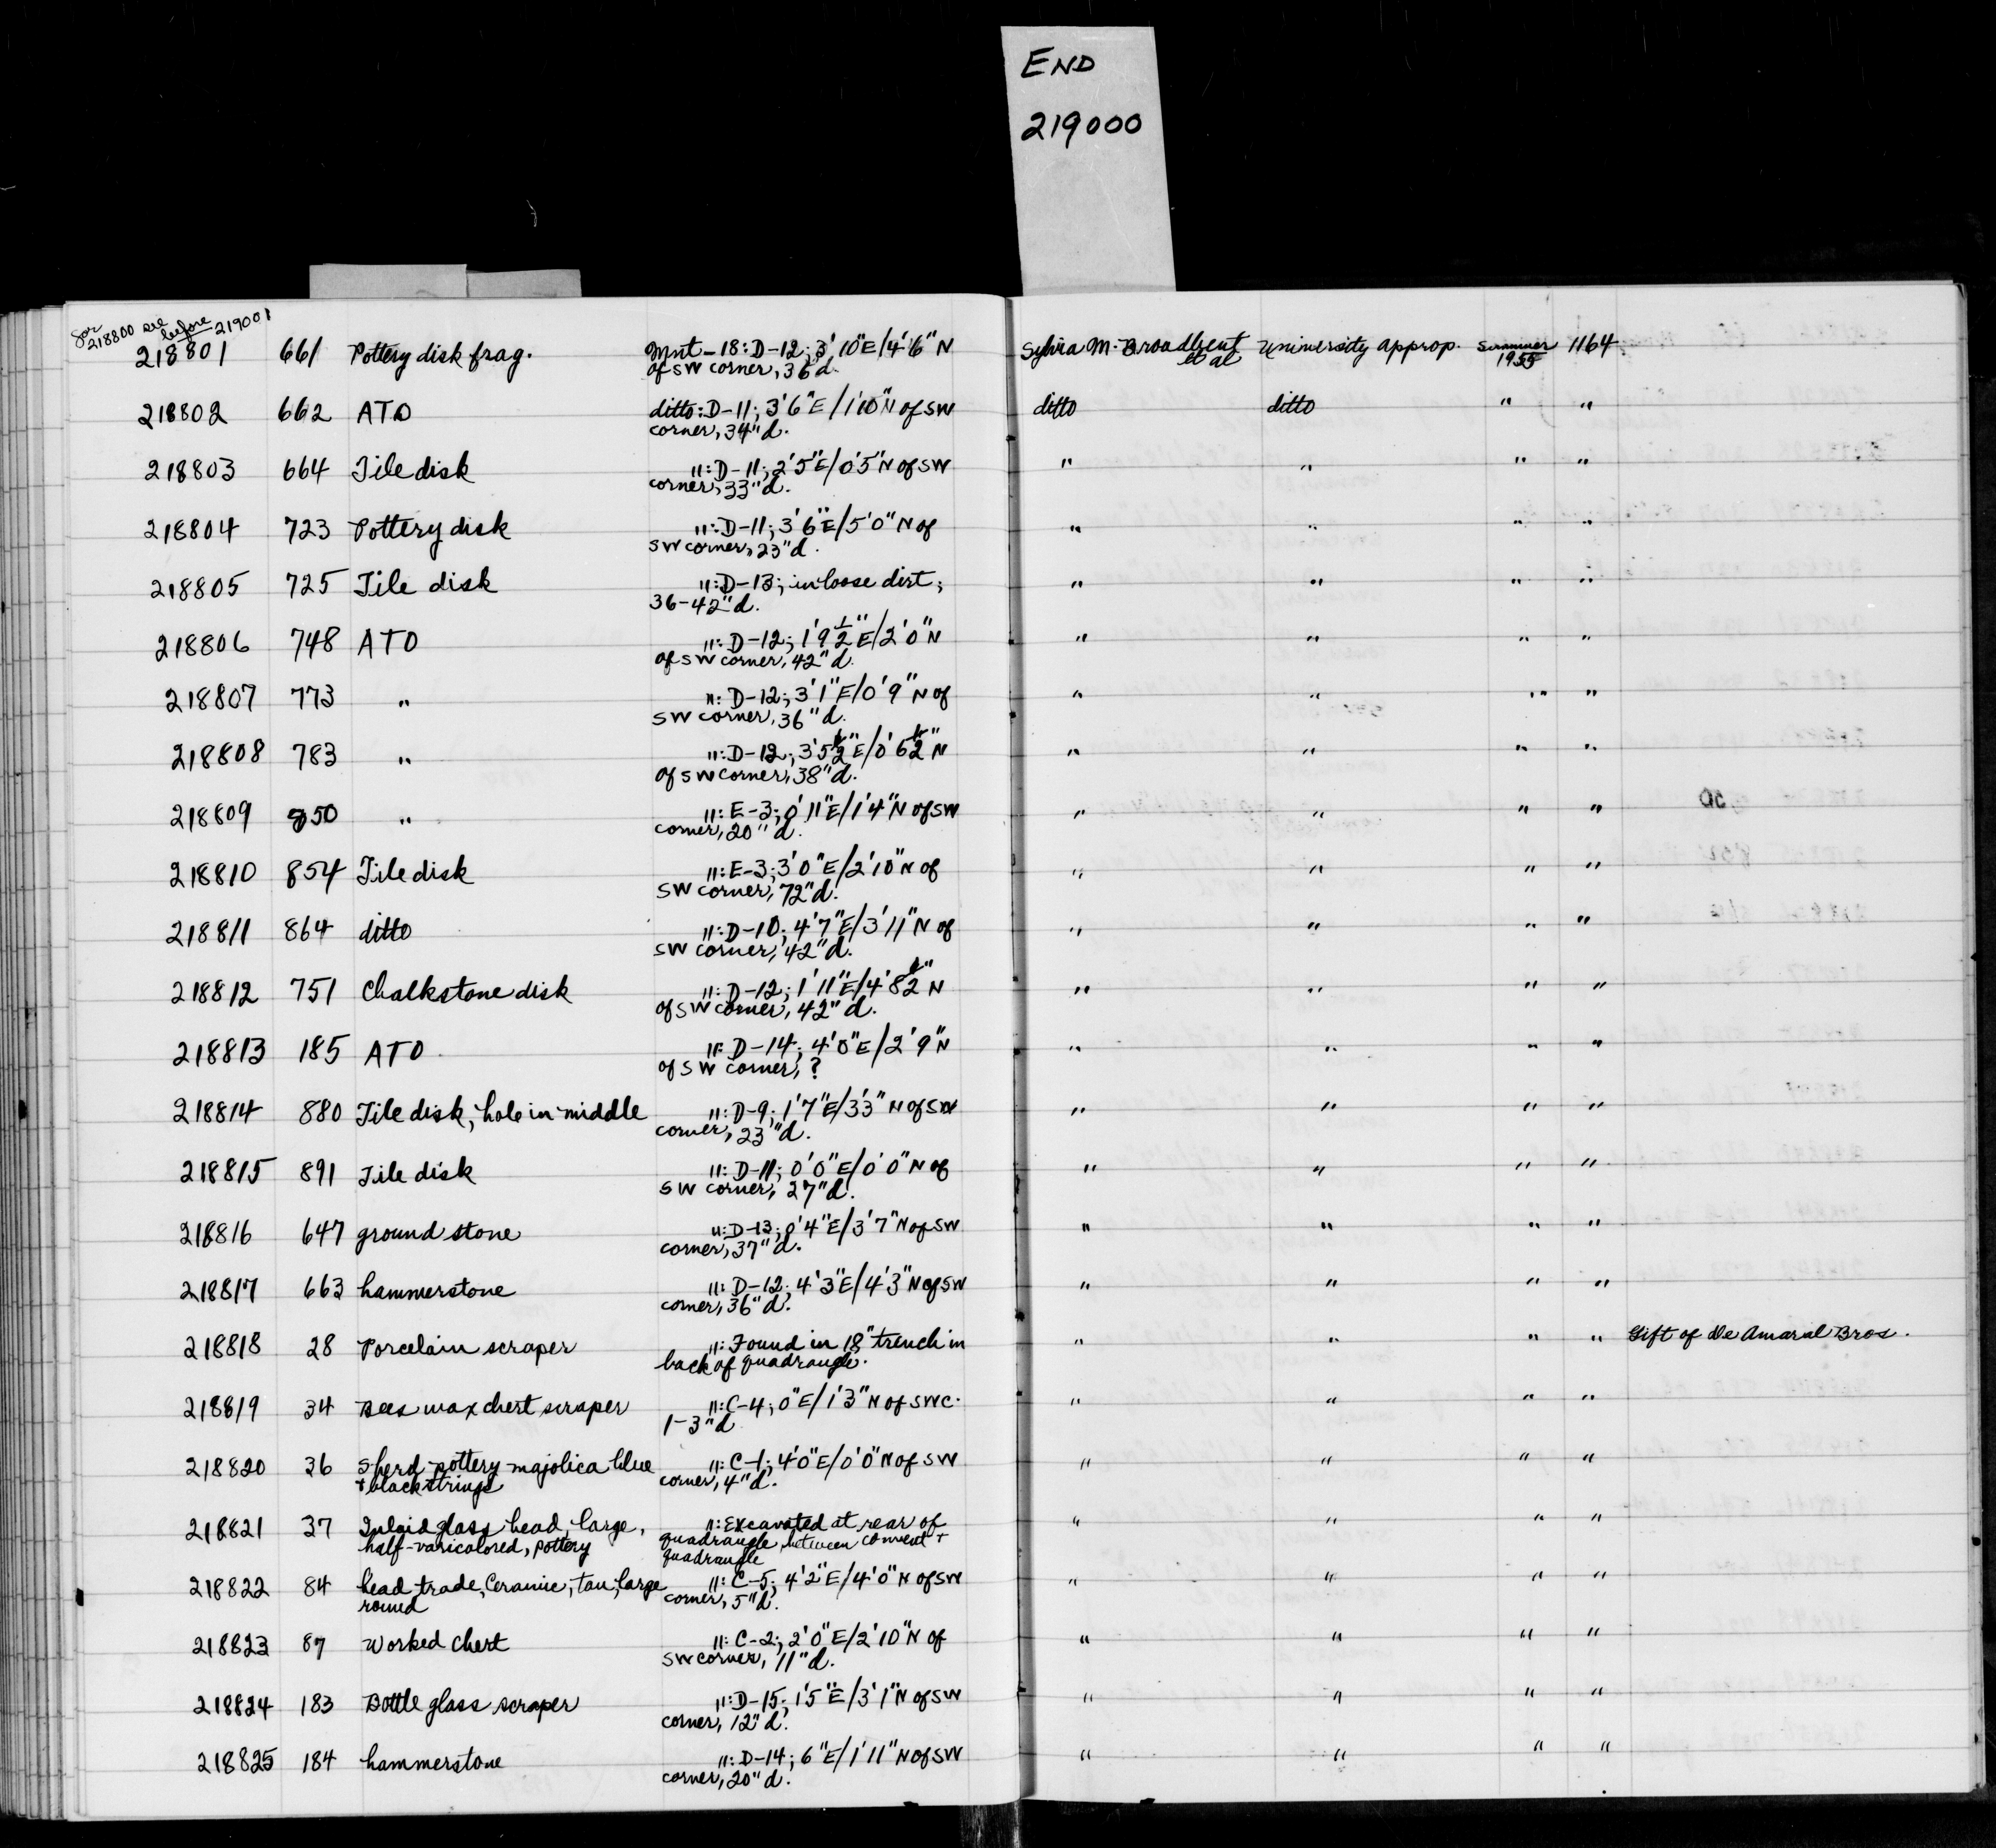 END
219000
for 218800 see before 219001
218801 661 Pottery disk frag. Mnt-18: D-12; 3'10"E/4'6"N Sylvia M. Broadbent University approp. Summer 1164
of SW corner, 36"d. et al 1955
218802 662 ATO ditto: D-11; 3'6"E/1'10"N of SW ditto ditto " "
corner, 34"d.
218803 664 Tile disk ": D-11; 2'5"E/0'5"N of SW " " " "
corner, 33"d.
218804 723 Pottery disk ": D-11; 3'6"E/5'0"N of " " " "
SW corner, 23"d.
218805 725 Tile disk ": D-13; in loose dirt; " " " "
36-42"d.
218806 748 ATO ": D-12; 1'9½"E/2'0"N " " " "
of SW corner, 42"d.
218807 773 " ": D-12; 3'1"E/0'9"N of " " " "
SW corner, 36"d.
218808 783 " ": D-12; 3'5½"E/0'6½"N " " " "
of SW corner, 38"d.
218809 850 " ": E-3; 0'11"E/1'4"N of SW " " " "
corner, 20"d.
218810 854 Tile disk ": E-3; 3'0"E/2'10"N of " " " "
SW corner, 72"d.
218811 864 ditto ": D-10; 4'7"E/3'11"N of " " " "
SW corner, 42"d.
218812 751 Chalkstone disk ": D-12; 1'11"E/4'8½"N " " " "
of SW corner, 42"d.
218813 185 ATO ": D-14; 4'0"E/2'9"N " " " "
of SW corner, ?
218814 880 Tile disk, hole in middle ": D-9; 1'7"E/3'3"N of SW " " " "
corner, 23"d.
218815 891 Tile disk ": D-11; 0'0"E/0'0"N of " " " "
SW corner, 27"d.
218816 647 ground stone ": D-13; 0'4"E/3'7"N of SW " " " "
corner, 37"d.
218817 663 hammerstone ": D-12; 4'3"E/4'3"N of SW " " " "
corner, 36"d.
218818 28 Porcelain scraper ": Found in 18" trench in " " " " Gift of De Amaral Bros.
back of quadrangle.
218819 34 Bees wax chert scraper ": C-4; 0"E/1'3"N of SWC. " " " "
1-3"d
218820 36 Sherd-pottery-majolica blue ": C-1; 4'0"E/0'0"N of SW " " " "
+ black strings corner, 4"d.
218821 37 Inlaid glass bead, large, ": Excavated at rear of " " " "
half-varicolored, pottery quadrangle between convent +
quadrangle
218822 84 bead trade, Ceramic, tan, large ": C-5; 4'2"E/4'0"N of SW " " " "
round corner, 5"d.
218823 87 Worked chert ": C-2; 2'0"E/2'10"N of " " " "
SW corner, 11"d.
218824 183 Bottle glass scraper ": D-15; 1'5"E/3'1"N of SW " " " "
corner, 12"d.
218825 184 hammerstone ": D-14; 6"E/1'11"N of SW " " " "
corner, 20"d.